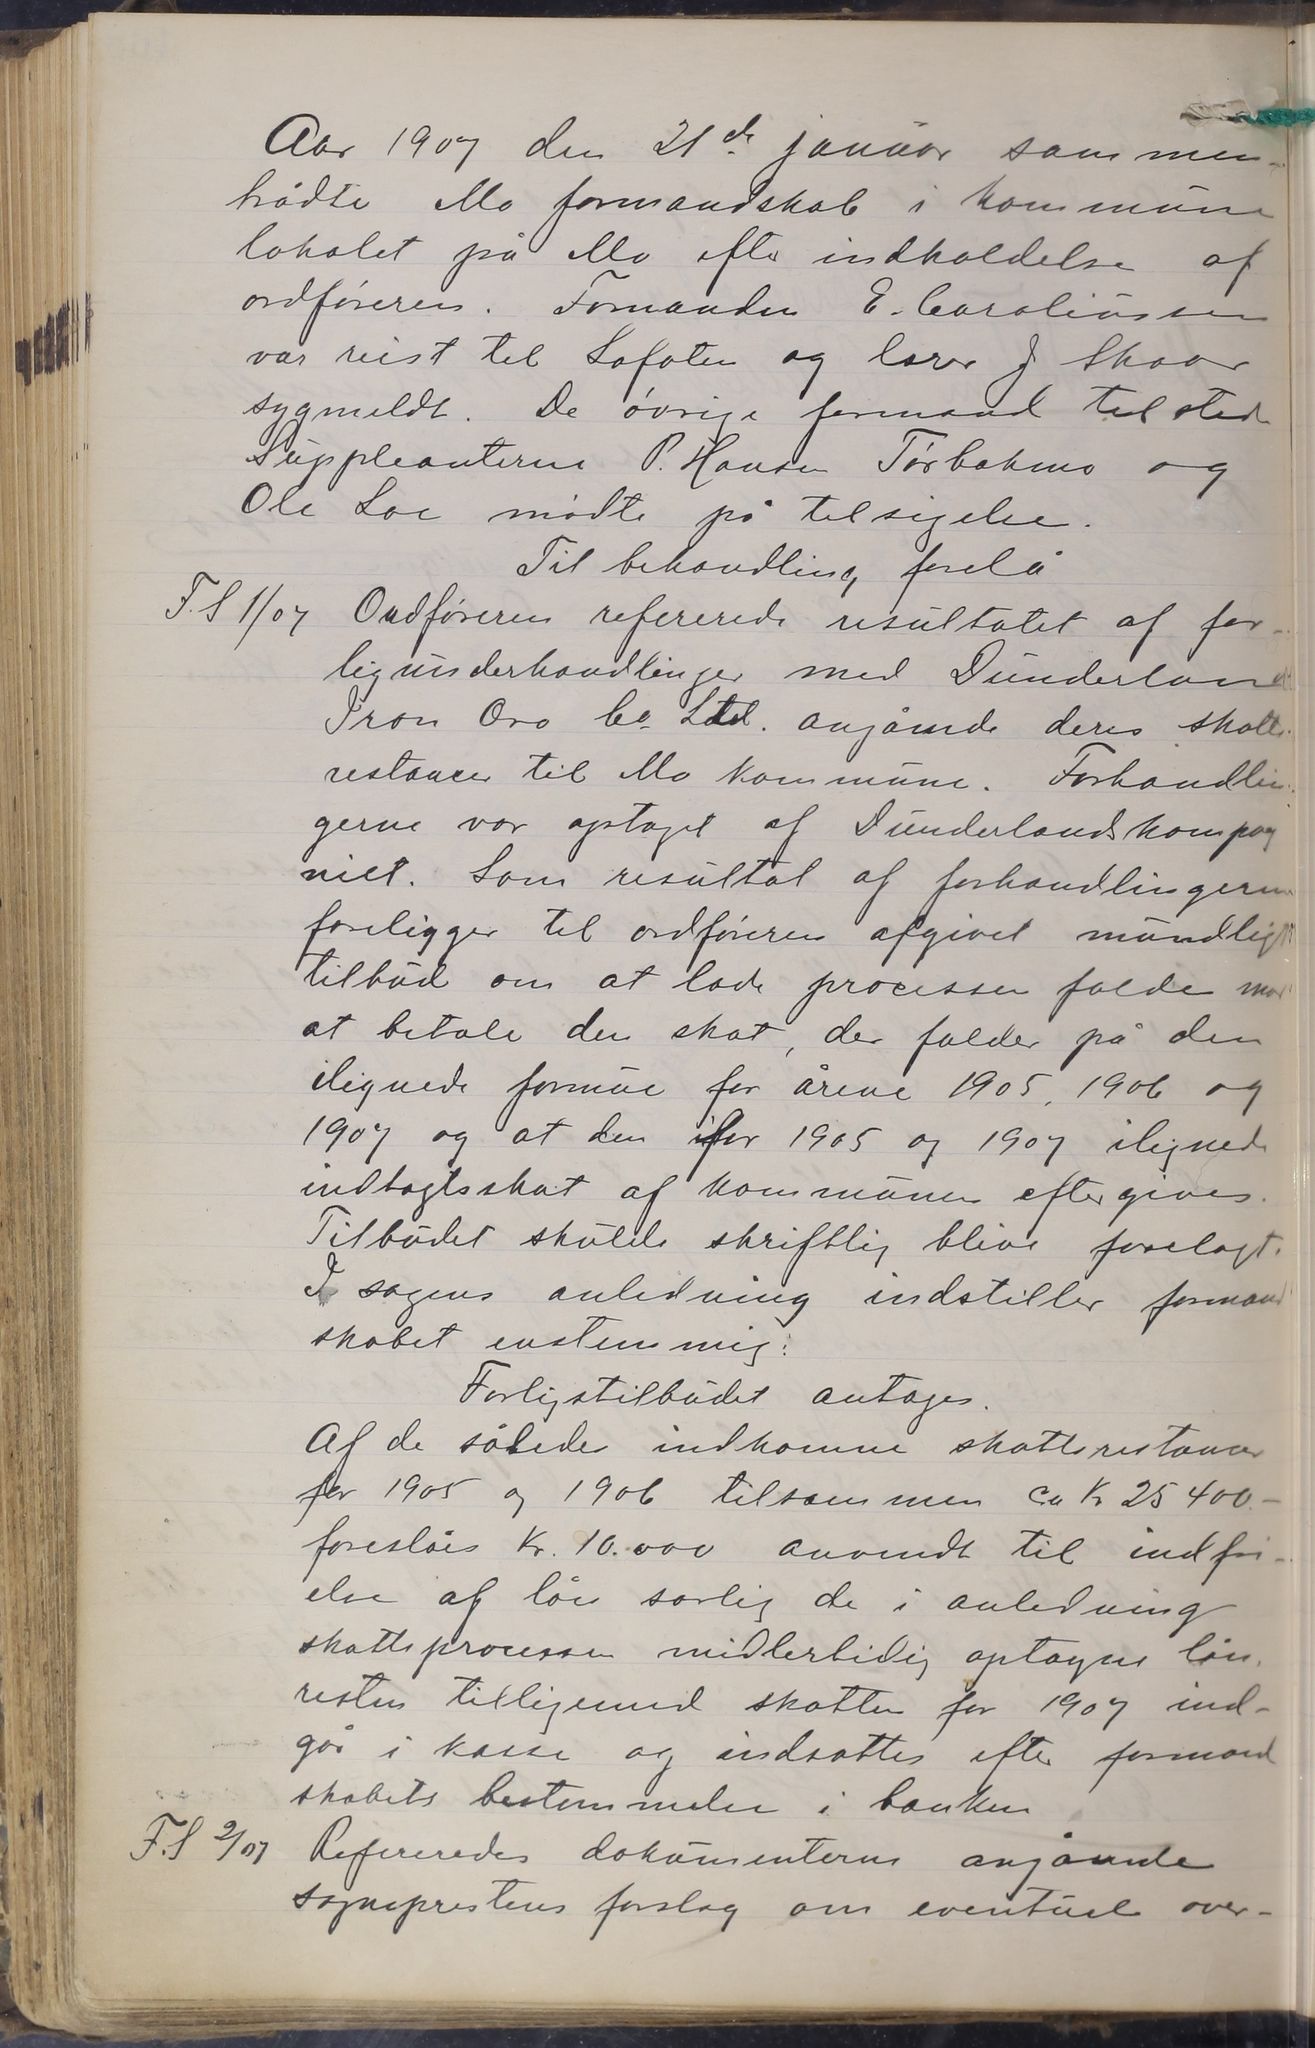 Aar 1907 den 21de januar sammen-
trådte Mo formandskab i kommune
lokalet på Mo efter indkaldelse af
ordføreren. Formanden E. Caroliussen
var reist til Lofoten og lærer J Skaar
sygmeldt. De øvrige formænd tilsted
Suppleanterne P. Hansen Tørbakmo og
Ole Loe mødte på tilsigelse.
Til behandling forelå
F.S 1/07 Ordføreren refererede resultatet af for-
ligsunderhandlinger med Dunderland
Iron Ore Co Ltd. angående deres skatte-
restancer til Mo kommune. Forhandlin-
gerne var optaget af Dunderlandskompag
niet. Som resultat af forhandlingerne
foreligger til ordføreren afgivet mundligt
tilbud om at lade processen falde mod
at betale den skat, der falder på den
ilignede formue for årene 1905, 1906 og
1907 og at den for 1905 og 1907 ilignede
indtægtsskat af kommunen eftergives.
Tilbudet skulde skriftlig blive forelagt.
I sagens anledning indstiller formand
skabet enstemmig:
Forligstilbudet antages.
Af de således indkomne skatterestancer
for 1905 og 1906 tilsammen ca Kr 25 400.-
foreslåes Kr. 10.000 anvendt til indfri-
else af lån særlig de i anledning
skatteprocessen midlertidig optagne lån.
resten tilligemed skatten for 1907 ind-
går i kasse og indsættes efter formand
skabets bestemmelse i banken
F.S 2/07 Refereredes dokumenterne angående
sogneprestens forslag om eventuel over-